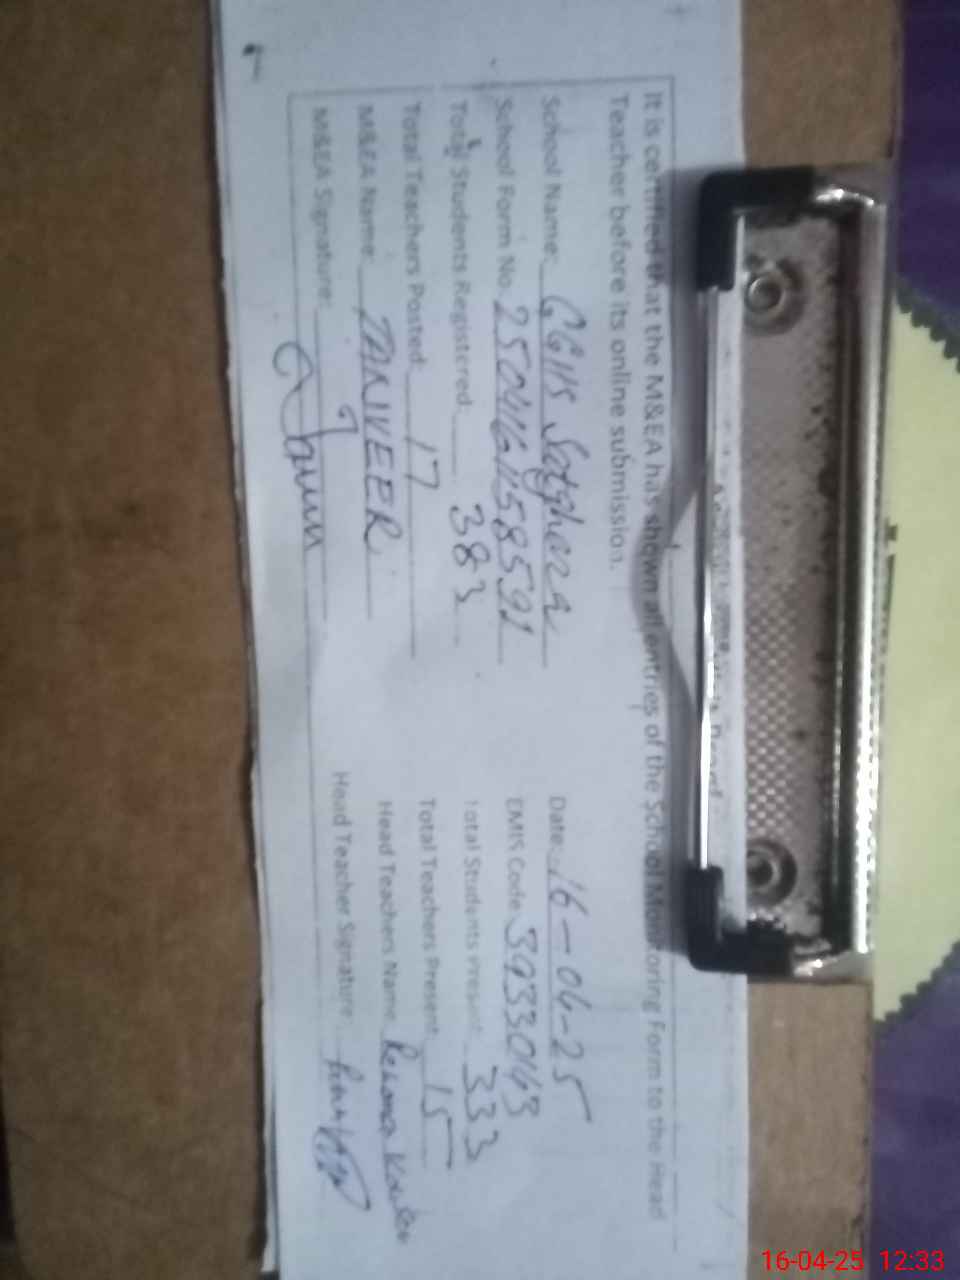 It is certified that the M&EA has shown all entries of the School Monitoring Form to the Head
Teacher before its online submission.
School Name: GGHS Satghara Date: 16-04-25
School Form No. 2504161158591 EMIS Code 39330163
Total Students Registered: 383 Total Students Present 333
Total Teachers Posted 17 Total Teachers Present 15
M&EA Name: TANVEER Head Teachers Name
M&EA Signature: Head Teacher Signature:
16-04-25 12:33